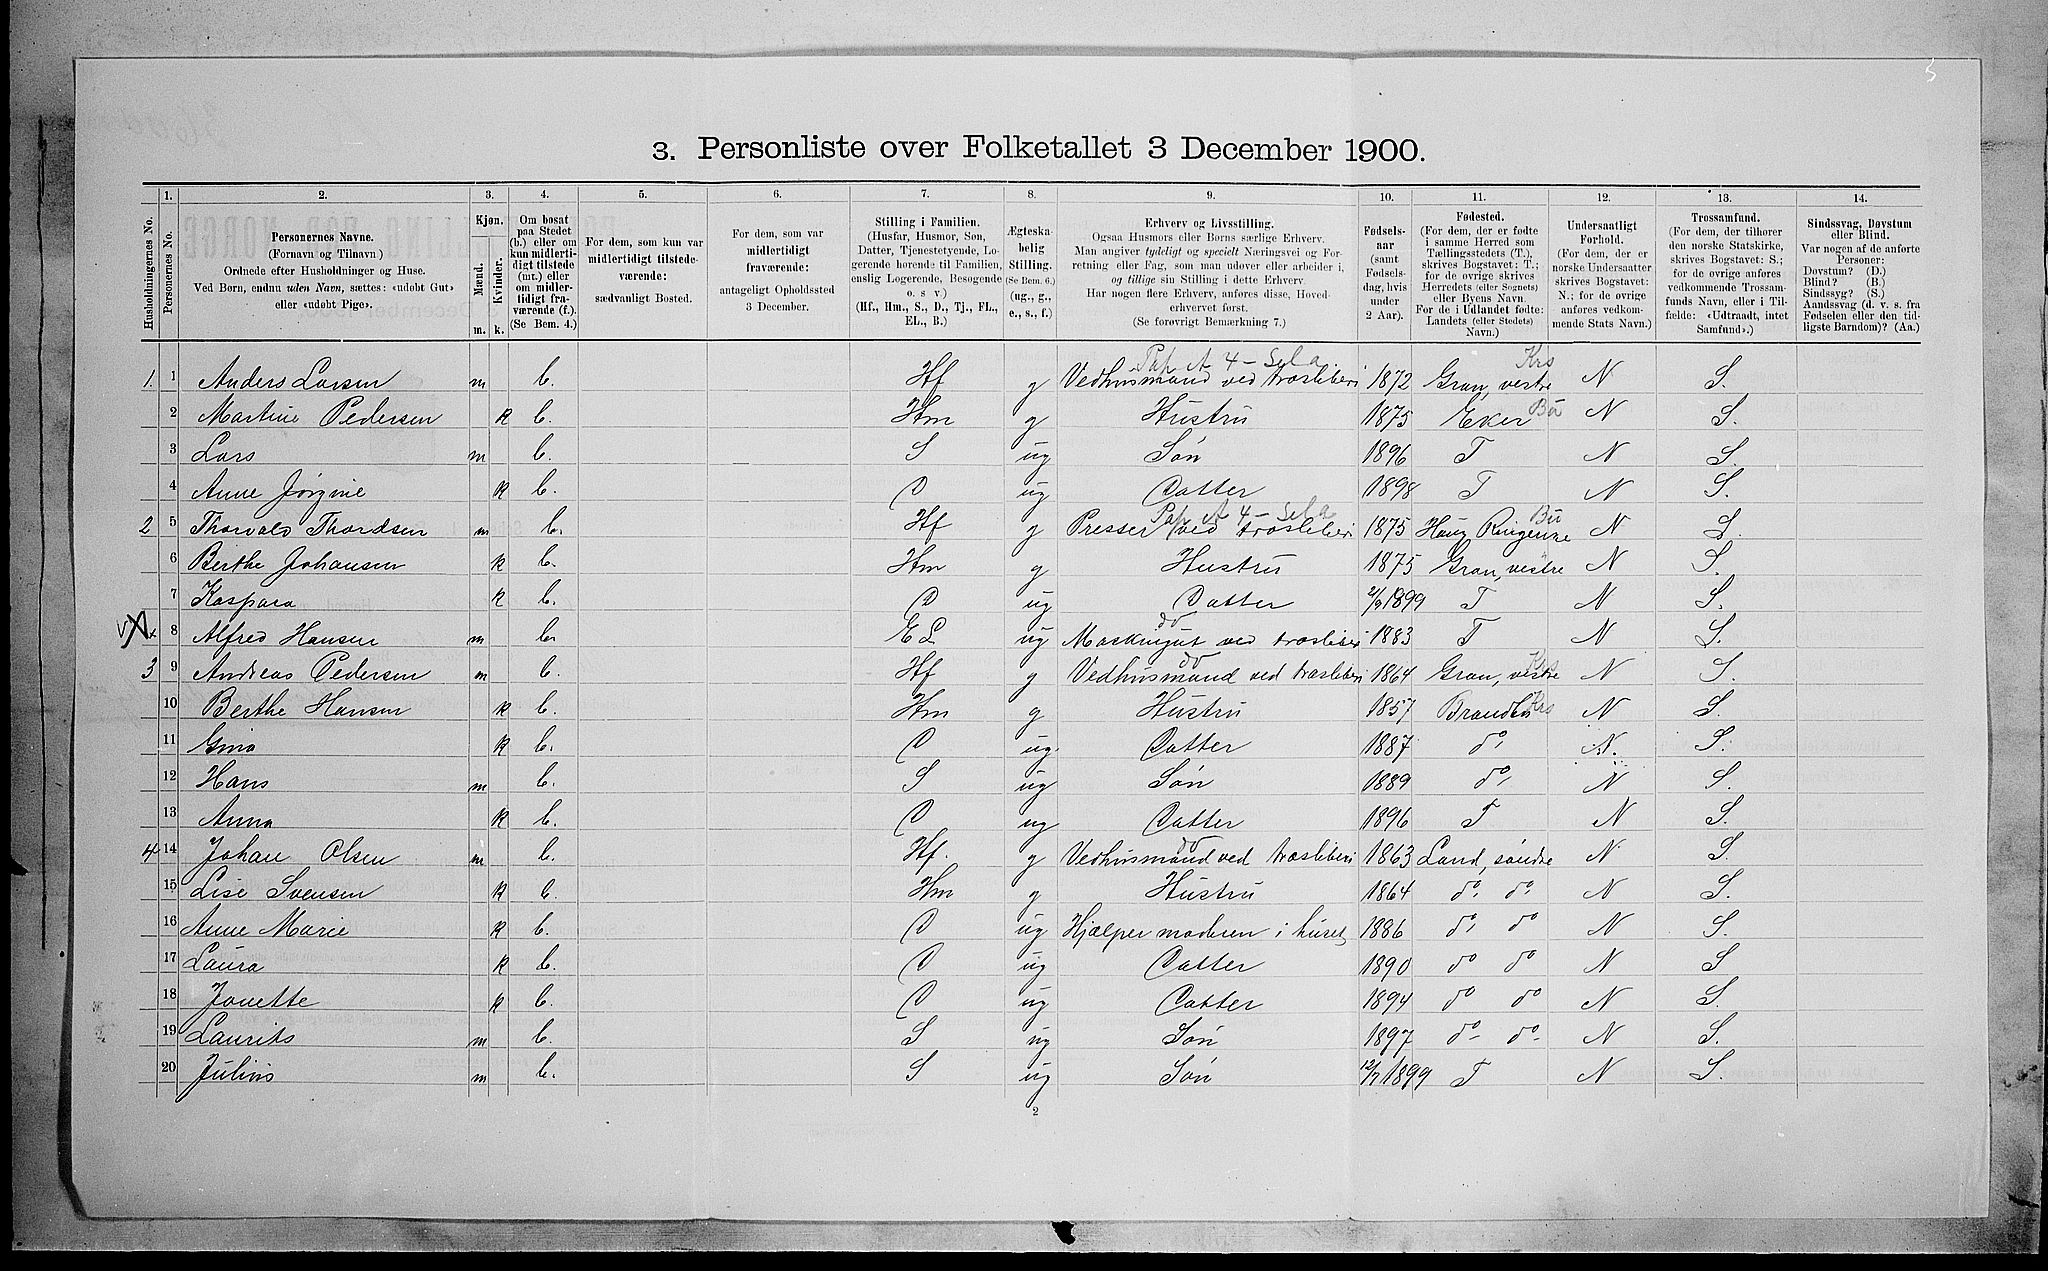 5
3. Personliste over Folketallet 3 December 1900.
1. 2. 3. 4. 5. 6. 7. 8. 9. 10. 11. 12. 13. 14.
Husholdningernes No.
Personernes No.
Personernes Navne.
(Fornavn og Tilnavn.)
Ordnede efter Husholdninger og Huse.
Ved Børn, endnu uden Navn, sættes: «udøbt Gut»
eller «udøbt Pige».
Kjøn.
Mænd.
Kvinder.
m. k.
Om bosat
paa Stedet
(b.) eller om
kun midlerti-
digt tilstede
(mt.) eller
om midler-
tidigt fra-
værende (f.).
(Se Bem. 4.)
For dem, som kun var
midlertidigt tilstede-
værende:
sædvanligt Bosted.
For dem, som var
midlertidigt
fraværende:
antageligt Opholdssted
3 December.
Stilling i Familien.
(Husfar, Husmor, Søn,
Datter, Tjenestetyende, Lo-
gerende hørende til Familien,
enslig Logerende, Besøgende
o. s. v.)
(Hf., Hm., S., D., Tj., FL.,
EL., B.)
Ægteska-
belig
Stilling.
(Se Bem. 6.)
(ug., g.,
e., s., f.)
Erhverv og Livsstilling.
Ogsaa Husmors eller Børns særlige Erhverv.
Man angiver tydeligt og specielt Næringsvei og For-
retning eller Fag, som man udøver eller arbeider i,
og tillige sin Stilling i dette Erhverv.
Har nogen flere Erhverv, anføres disse, Hoved-
erhvervet først.
(Se forøvrigt Bemærkning 7.)
Fødsels-
aar
(samt
Fødsels-
dag, hvis
under
2 Aar).
Fødested.
(For dem, der er fødte
i samme Herred som
Tællingsstedets (T.),
skrives Bogstavet: T.;
for de øvrige skrives
Herredets (eller Sognets)
eller Byens Navn.
For de i Udlandet fødte:
Landets (eller Stedets)
Navn.)
Undersaatligt
Forhold.
(For dem, der er
norske Undersaatter
skrives Bogstavet:
N.; for de øvrige
anføres vedkom-
mende Stats Navn.)
Trossamfund.
(For dem, der tilhører
den norske Statskirke,
skrives Bogstavet: S.;
for de øvrige anføres
vedkommende Trossam-
funds Navn, eller i Til-
fælde: «Udtraadt, intet
Samfund».)
Sindssvag, Døvstum
eller Blind.
Var nogen af de anførte
Personer:
Døvstum? (D.)
Blind? (B.)
Sindssyg? (S.)
Aandssvag (d. v. s. fra
Fødselen eller den tid-
ligste Barndom)? (Aa.)
1. 1 Anders Larsen m b. Hf g Vedhusmand ved træsliberi 1872 Gran, vestre Krs N S.
2 Martine Pedersen k b. Hm g Hustru 1875 Eker Bu N S.
3 Lars m b. S ug Søn 1896 T N S.
4 Anne Jørgine k b. D ug Datter 1898 T N S.
2 5 Thorvald Thordsen m b. Hf g Presser ved træsliberi 1875 Haug Ringerike Bu N S.
6 Berthe Johansen k b. Hm g Hustru 1875 Gran, vestre N S.
7 Kaspara k b. D ug Datter 1899 T N S.
8 Alfred Hansen m b. EL ug Maskingut ved træsliberi do 1883 T N S.
3 9 Andreas Pedersen m b. Hf g Vedhusmand ved træsliberi do 1864 Gran, vestre Krs N S.
10 Berthe Hansen k b. Hm g Hustru 1857 Brandbu Krs N S.
11 Gina k b. D ug. Datter 1887 do, N. S.
12 Hans m b. S ug Søn 1889 do, N S.
13 Anna k b. D ug Datter 1896 T N S.
4 14 Johan Olsen m b. Hf. g Vedhusmand ved træsliberi do 1863 Land, søndre N S.
15 Lise Svensen k b. Hm g Hustru 1864 do, do, N S.
16 Anne Marie k b. D ug Hjælper moderen i huset, 1886 do, do N S.
17 Laura k b. D ug Datter 1890 do do N S
18 Jonette k b. D ug Datter 1894 do do N S.
19 Laurits m b. S ug Søn 1897 do do N S.
20 Julius m b. S ug Søn 12/7 1899 T N S.
2